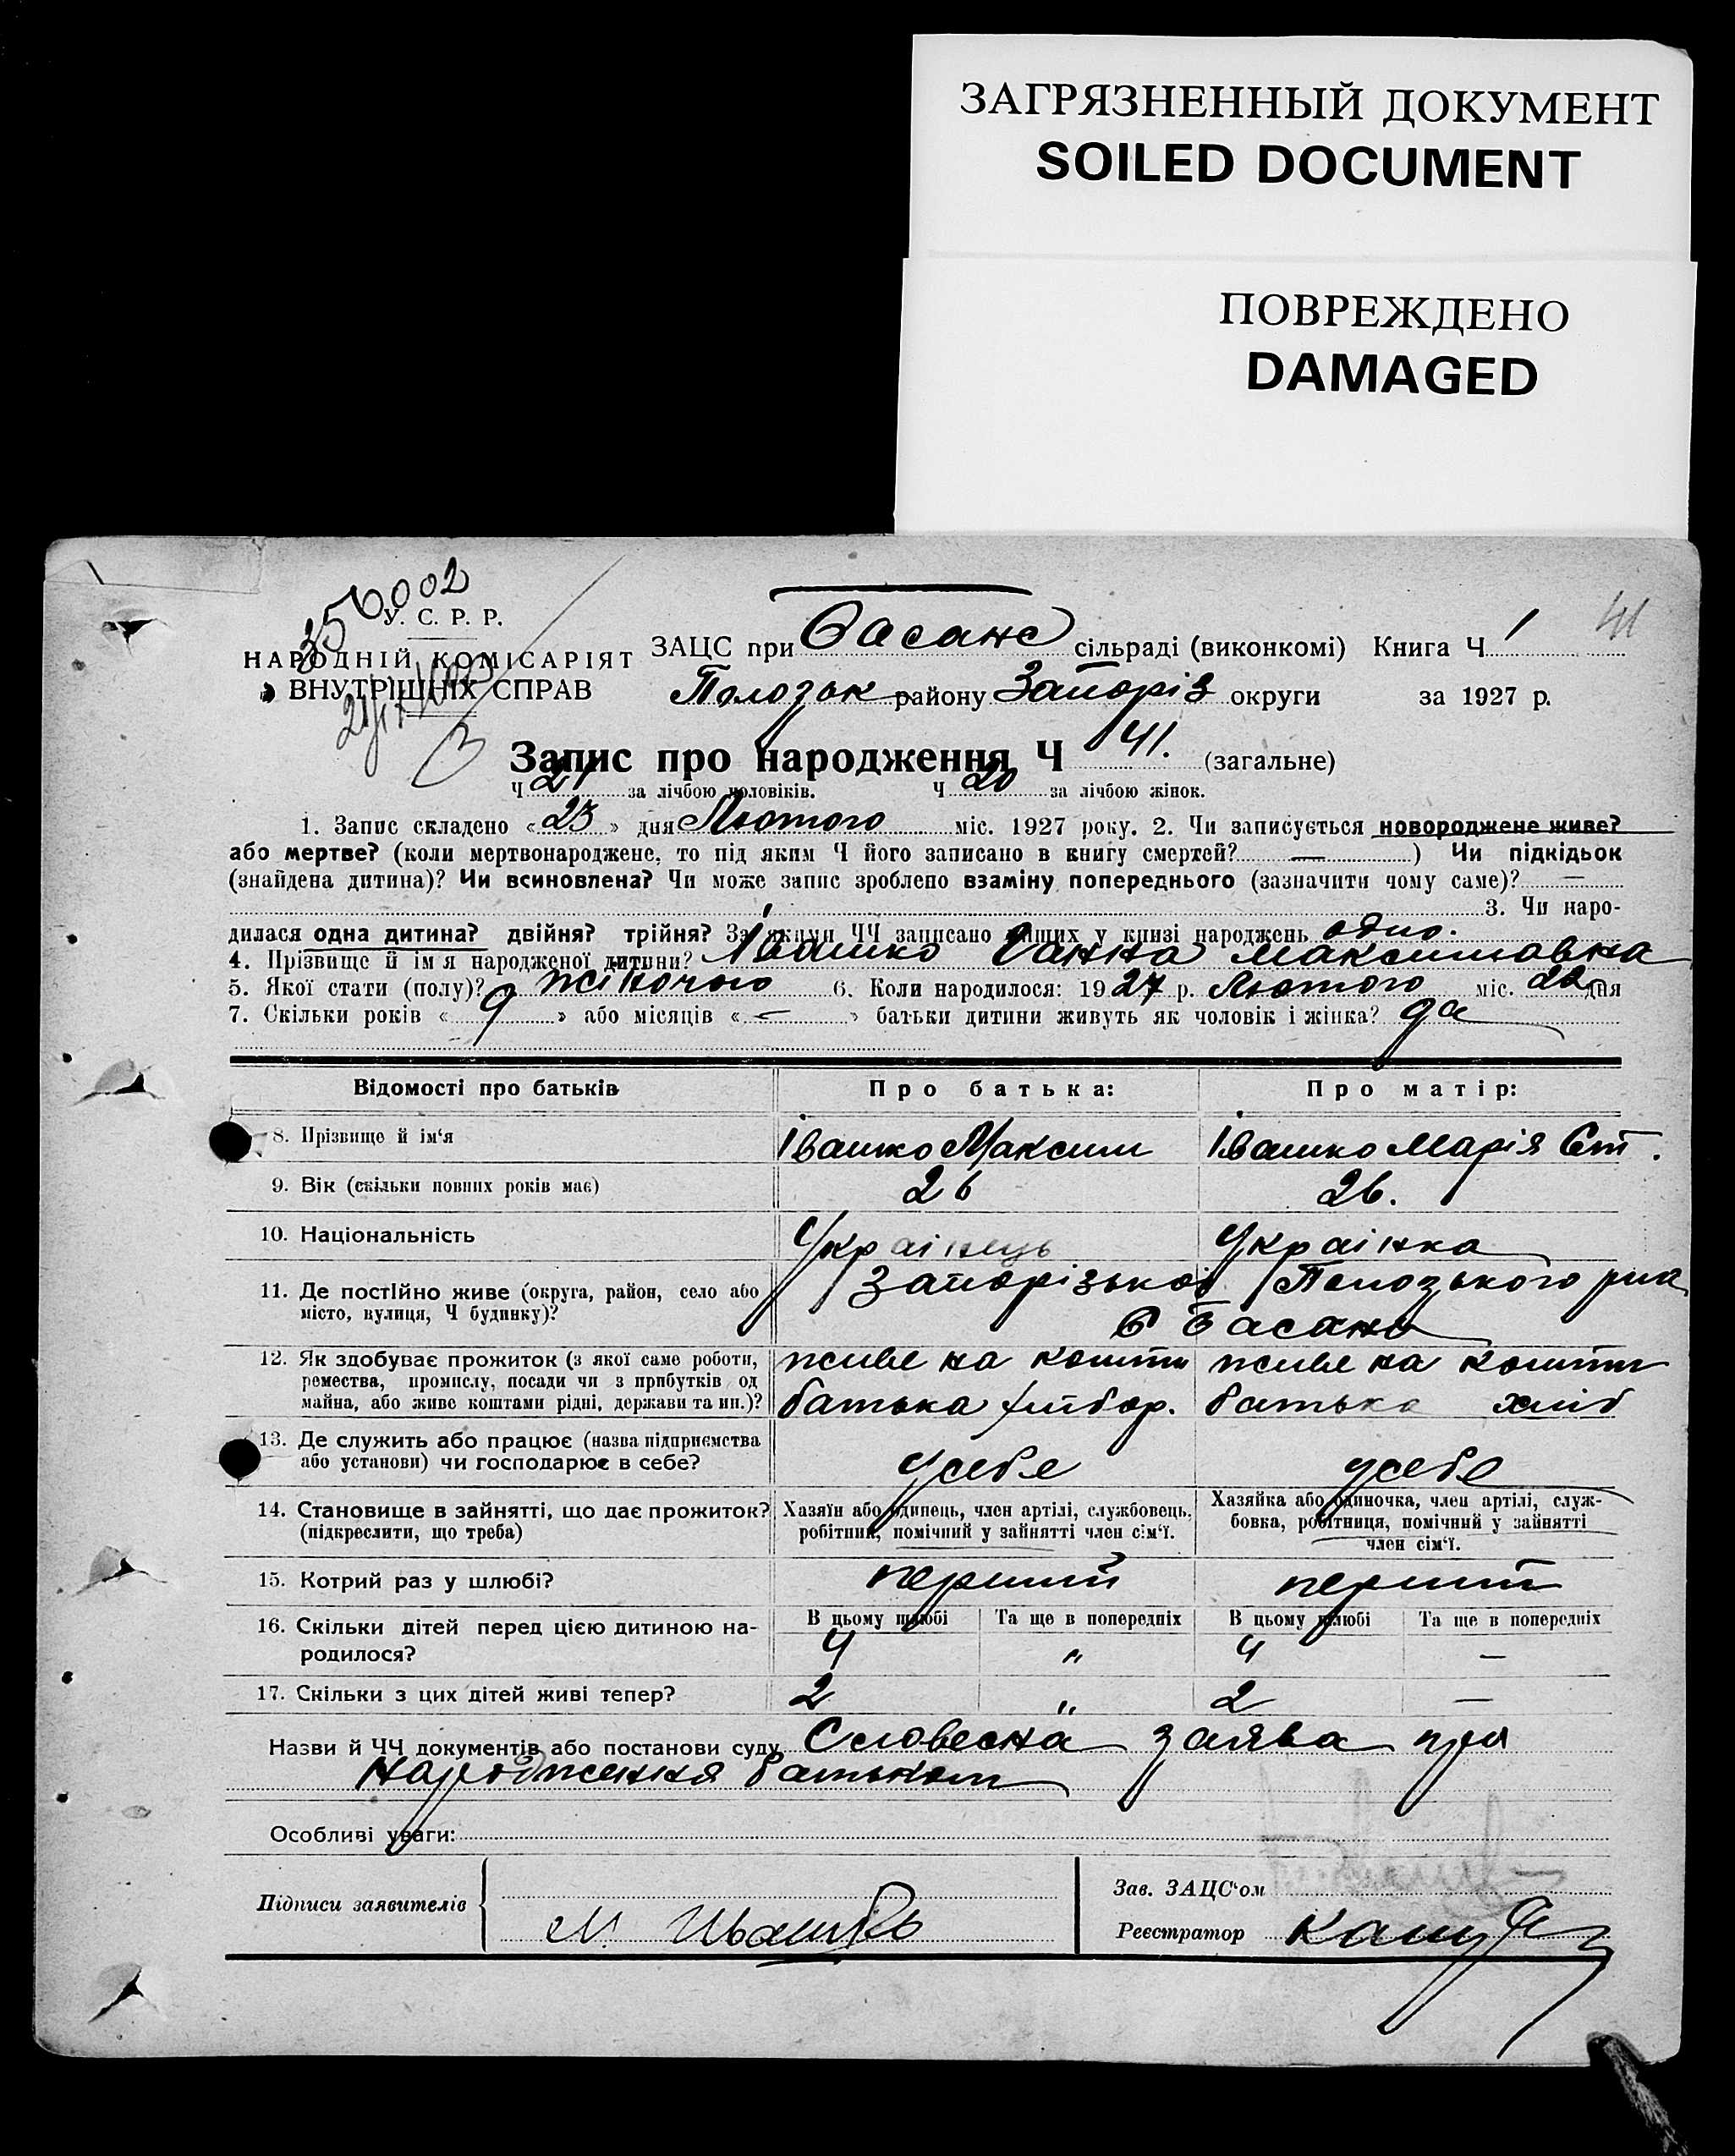 ЗАГРЯЗНЕННЫЙ ДОКУМЕНТ
SOILED DOCUMENT
ПОВРЕЖДЕНО
DAMAGED
У. С. Р. Р.
НАРОДНІЙ КОМІСАРІЯТ
ВНУТРІШНІХ СПРАВ
41
ЗАЦС при Басанс сільраді (виконкомі) Книга Ч 1
Полозьк району Запоріз округи за 1927 р.
Запис про народження Ч 41. (загальне)
Ч 21 за лічбою чоловіків. Ч 20 за лічбою жінок.
1. Запис складено « 23 » дня Лютого міс. 1927 року. 2. Чи записується новороджене живе?
або мертве? (коли мертвонароджене, то під яким Ч його записано в книгу смертей? — ) Чи підкідьок
(знайдена дитина)? Чи всиновлена? Чи може запис зроблено взаміну попереднього (зазначити чому саме)? —
3. Чи наро-
дилася одна дитина? двійня? трійня? За якими ЧЧ записано інших у книзі народжень одно.
4. Прізвище й ім'я народженої дитини? Івашко Ганна Максимовна
5. Якої стати (полу)? жіночого 6. Коли народилося: 1927 р. Лютого міс. 22 дня
7. Скільки років « 9 » або місяців « — » батьки дитини живуть як чоловік і жінка? да
Відомості про батьків Про батька: Про матір:
8. Прізвище й ім'я Івашко Максим Івашко Марія Єт.
9. Вік (скільки повних років має) 26 26.
10. Національність Українець Українка
11. Де постійно живе (округа, район, село або
місто, вулиця, Ч будинку)?
Запорізької Полозького р-на
с Басань
12. Як здобуває прожиток (з якої саме роботи,
ремества, промислу, посади чи з прибутків од
майна, або живе коштами рідні, держави та ин.)?
живе на кошти живе на кошти
батька хлібор. батька хліб
13. Де служить або працює (назва підприємства
або установи) чи господарює в себе?
усебе усебе
14. Становище в зайнятті, що дає прожиток?
(підкреслити, що треба)
Хазяїн або одинець, член артілі, службовець,
робітник, помічний у зайнятті член сім'ї.
Хазяйка або одиночка, член артілі, служ-
бовка, робітниця, помічний у зайнятті
член сім'ї.
15. Котрий раз у шлюбі? перший перший
16. Скільки дітей перед цією дитиною на-
родилося?
В цьому шлюбі Та ще в попередніх В цьому шлюбі Та ще в попередніх
4 " 4 —
17. Скільки з цих дітей живі тепер? 2 " 2 —
Назви й ЧЧ документів або постанови суду Словесна заява про
Народження батьком
Особливі уваги:
Підписи заявителів М. Ивашко
Зав. ЗАЦС'ом
Реєстратор